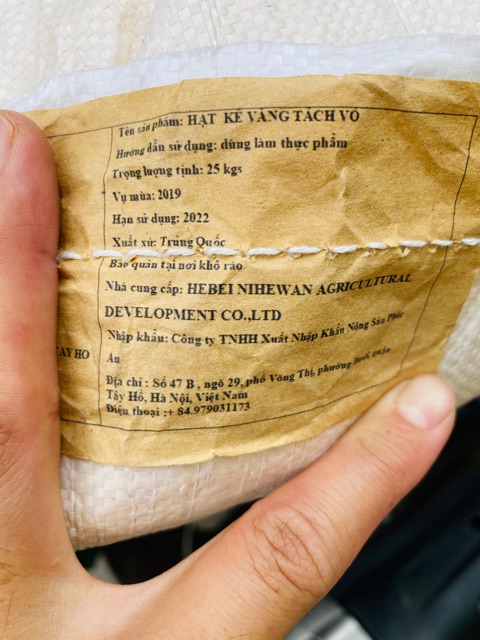 Tên sản phẩm: HẠT KÊ VÀNG TÁCH VỎ
Hướng dẫn sử dụng: dùng làm thực phẩm
Trọng lượng tịnh: 25 kgs
Vụ mùa: 2019
Hạn sử dụng: 2022
Xuất xứ: Trung Quốc
Bảo quản tại nơi khô ráo
Nhà cung cấp: HEBEI NIHEWAN AGRICULTURAL
DEVELOPMENT CO.,LTD
Nhập khẩu: Công ty TNHH Xuất Nhập Khẩu Nông Sản Phúc
Ân
Địa chỉ : Số 47 B , ngõ 29, phố Võng Thị, phường Bưởi, quận
Tây Hồ, Hà Nội, Việt Nam
Điện thoại :+ 84.979031173